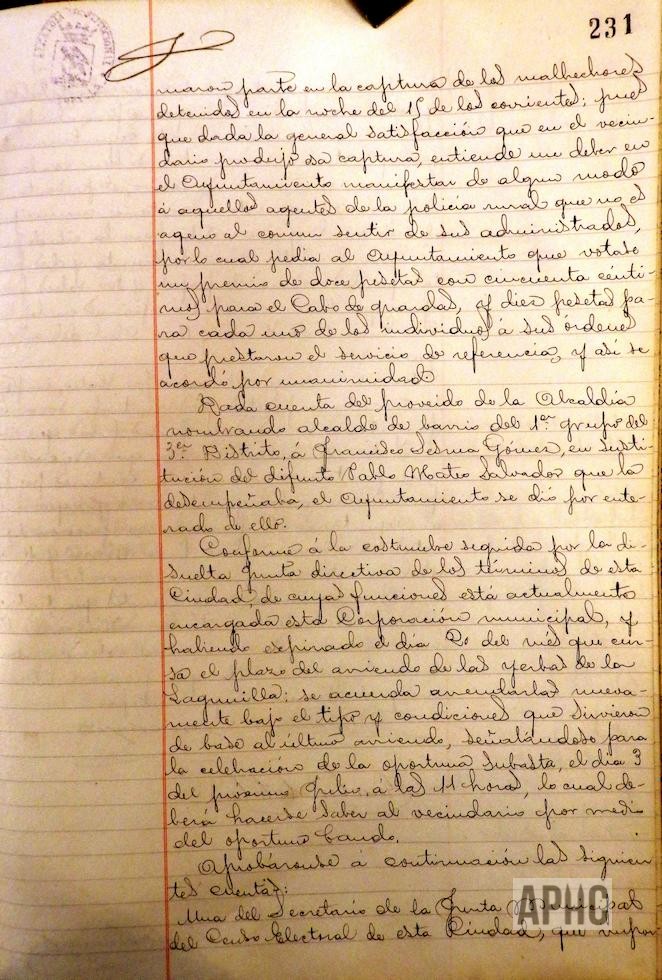 231
maron parte en la captura de los malhechores
detenidos en la noche del 15 de los corrientes; pues
que dada la general satisfacción que en el vecin-
dario produjo sa captura, entiende un deber en
el Ayuntamiento manifestar de algun modo
á aquellos agentes de la policía rural que no es
ageno al comun sentir de sus administrados,
por lo cual pedia al Ayuntamiento que votase
un premio de doce pesetas con cincuenta cénti-
mos para el Cabo de guardas, y diez pesetas pa-
ra cada uno de los individuos á sus órdenes
que prestaron el servicio de referencia, y así se
acordó por unanimidad.
Dada cuenta del proveido de la Alcaldía
nombrando alcalde de barrio del 1er grupo del
3er Distrito, á Francisco Sesma Gómez, en susti-
tución del difunto Pablo Mateo Salvador que la
desempeñaba, el Ayuntamiento se dió por ente-
rado de ello.
Conforme á la costumbre seguida por la di-
suelta Junta directiva de los términos de esta
Ciudad, de cuyas funciones está actualmente
encargada esta Corporación municipal, y
habiendo espirado el día 20 del més que cur-
sa el plazo del arriendo de las yerbas de la
Lagunilla: se acuerda arrendarlas nueva-
mente bajo el tipo y condiciones que sirvieron
de base al último arriendo, señalándose para
la celebración de la oportuna subasta, el día 3
del próximo Julio, á las 11 horas, lo cual de-
berá hacerse saber al vecindario por medio
del oportuno bando.
Aprobáronse á continuación las siguien-
tes cuentas:
Una del Secretario de la Junta Municipal
del Censo Electoral de esta Ciudad, que impor-
APHG